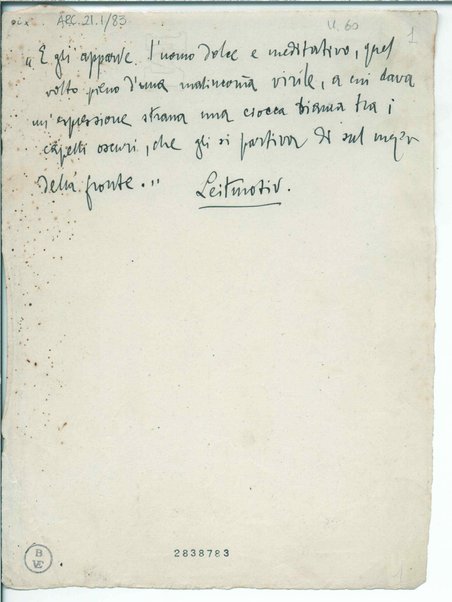 oix ARC.21.I/83 U. 60 1
"E gli apparve l'uomo dolce e meditativo, quel
volto pieno d'una malinconia virile, a cui dava
un'espressione strana una ciocca bianca tra i
capelli oscuri, che gli si partiva di sul mezzo
della fronte."
Leitmotiv.
B
VE
2838783